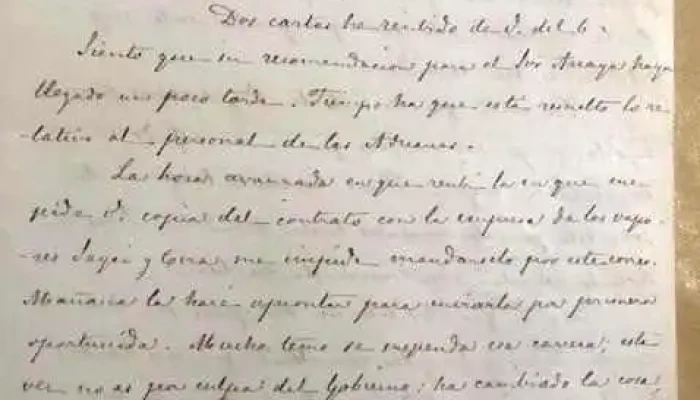 Dos cartas he recibido de V. del 6.
Siento que su recomendación para el Sor Anaya haya
llegado un poco tarde. Tiempo ha que está resuelto lo re-
lativo al personal de las Aduanas.
La hora avanzada en que recibí la en que me
pide V. copia del contrato con la empresa de los vapo-
res y me impide mandárselo por este correo.
Mañana la haré aprontar para enviarla por primera
oportunidad. Mucho temo se suspenda esa carrera; esta
vez no es por culpa del Gobierno; ha cambiado la cosa,